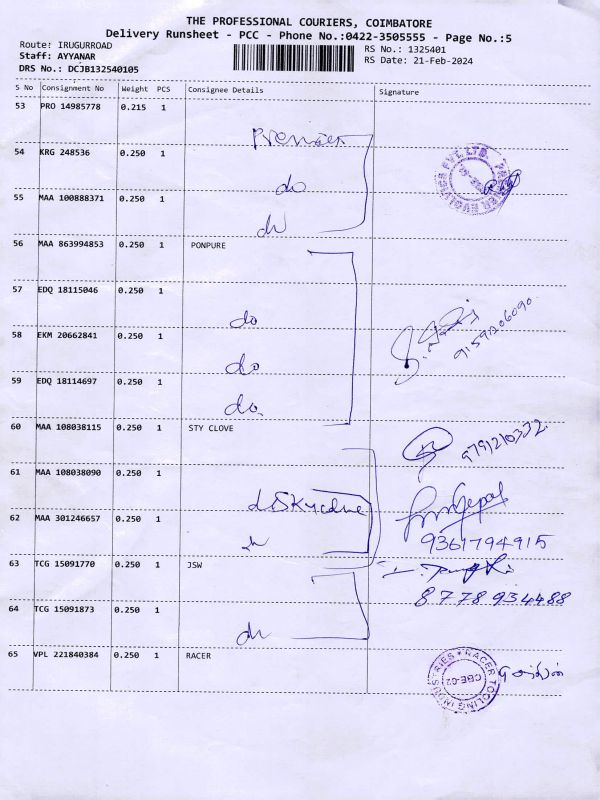 THE PROFESSIONAL COURIERS, COIMBATORE
Delivery Runsheet - PCC - Phone No.:0422-3505555 - Page No.:5
Route: IRUGURROAD RS No.: 1325401
Staff: AYYANAR RS Date: 21-Feb-2024
DRS No.: DCJB132540105
S No Consignment No Weight PCS Consignee Details Signature
53 PRO 14985778 0.215 1
Premier
54 KRG 248536 0.250 1
do
55 MAA 100888371 0.250 1
do
56 MAA 863994853 0.250 1 PONPURE
57 EDQ 18115046 0.250 1
do
58 EKM 20662841 0.250 1
do
59 EDQ 18114697 0.250 1
do
60 MAA 108038115 0.250 1 STY CLOVE
9791210332
61 MAA 108038090 0.250 1
62 MAA 301246657 0.250 1
9361794915
63 TCG 15091770 0.250 1 JSW
8778934488
64 TCG 15091873 0.250 1
do
65 VPL 221840384 0.250 1 RACER
RACER TOOLING INDUSTRIES
CBE-02